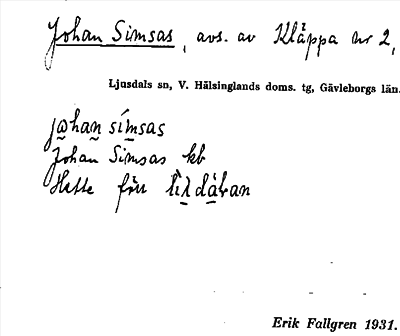 Johan Simsas, avs. av Kläppa nr 2,
Ljusdals sn, V. Hälsinglands doms. tg, Gävleborgs län.
johan símsas
Johan Simsas kb
Hette förr
Erik Fallgren 1931.